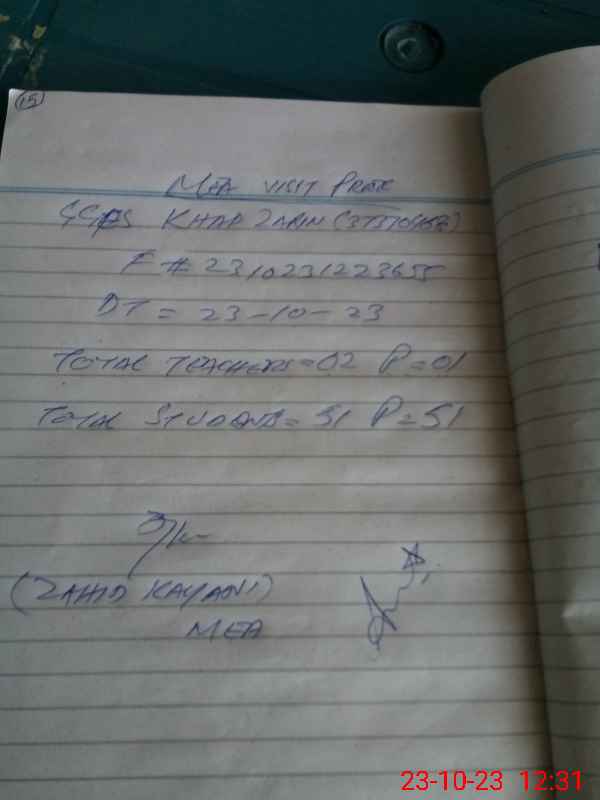 15
MEA VISIT PROF
GGPS KHAD ZARIN (37370456)
F # 2310231223655
DT = 23-10-23
TOTAL TEACHERS = 02 P = 01
TOTAL STUDENTS = 51 P = 51
(ZAHID KAYANI)
MEA
23-10-23 12:31